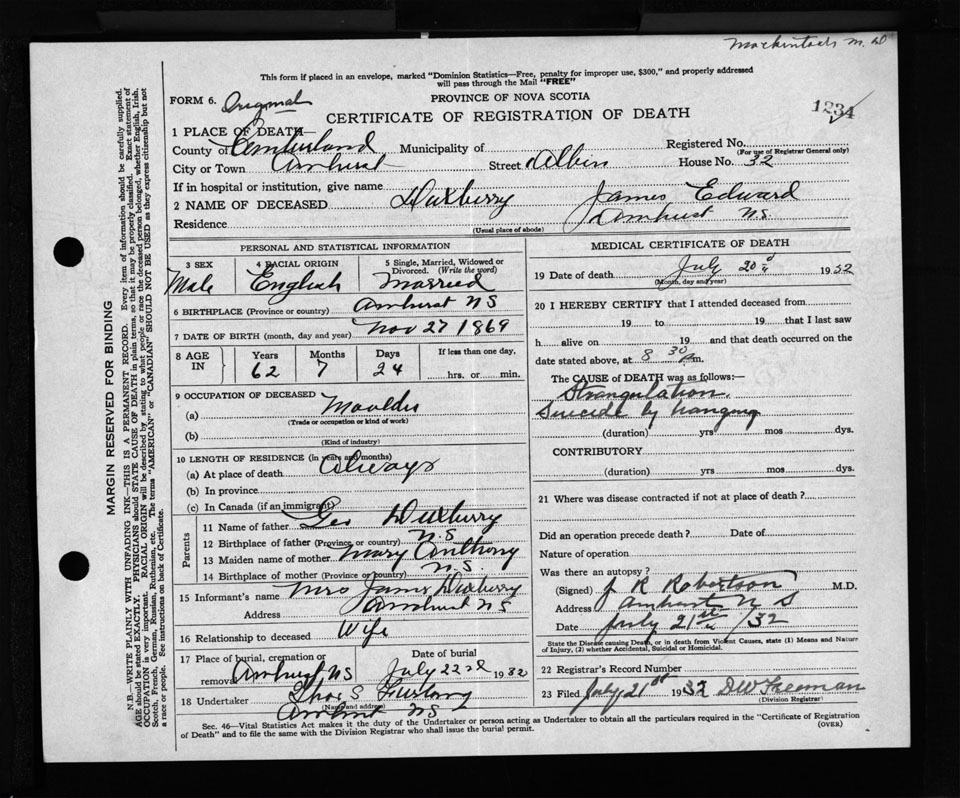 Mackintosh M.D
This form if placed in an envelope, marked "Dominion Statistics—Free, penalty for improper use, $300," and properly addressed
will pass through the Mail "FREE"
FORM 6. Original
PROVINCE OF NOVA SCOTIA
CERTIFICATE OF REGISTRATION OF DEATH
1234
1 PLACE OF DEATH—
County of Cumberland Municipality of Registered No.
(For use of Registrar General only)
City or Town Amherst Street Albion House No. 32
If in hospital or institution, give name
2 NAME OF DECEASED Duxberry James Edward
Residence Amherst N.S.
(Usual place of abode)
PERSONAL AND STATISTICAL INFORMATION
3 SEX Male
4 RACIAL ORIGIN English
5 Single, Married, Widowed or Divorced. (Write the word) Married
6 BIRTHPLACE (Province or country) Amherst NS
7 DATE OF BIRTH (month, day and year) Nov 27 1869
8 AGE IN Years 62 Months 7 Days 24 If less than one day, hrs. or min.
9 OCCUPATION OF DECEASED
(a) Moulder
(Trade or occupation or kind of work)
(b)
(Kind of industry)
10 LENGTH OF RESIDENCE (in years and months)
(a) At place of death Always
(b) In province
(c) In Canada (if an immigrant)
Parents
11 Name of father Geo Duxberry
12 Birthplace of father (Province or country) N.S
13 Maiden name of mother Mary Anthony
14 Birthplace of mother (Province or country) N.S.
15 Informant's name Mrs James Duxberry
Address Amherst NS
16 Relationship to deceased Wife
17 Place of burial, cremation or removal Amherst NS Date of burial July 22nd 1932
18 Undertaker Thos S Furlong
(Name and address)
Amherst NS
MEDICAL CERTIFICATE OF DEATH
19 Date of death July 20 1932
(Month, day and year)
20 I HEREBY CERTIFY that I attended deceased from
19 to 19 that I last saw
h alive on 19 and that death occurred on the
date stated above, at 8 30 p.m.
The CAUSE OF DEATH was as follows:—
Strangulation.
Suicide by hanging
(duration) yrs mos dys.
CONTRIBUTORY
(duration) yrs mos dys.
21 Where was disease contracted if not at place of death ?
Did an operation precede death ? Date of
Nature of operation
Was there an autopsy ?
(Signed) J R Robertson M.D.
Address Amherst N S
Date July 21st /32
State the Disease causing Death, or in death from Violent Causes, state (1) Means and Nature
of Injury, (2) whether Accidental, Suicidal or Homicidal.
22 Registrar's Record Number
23 Filed July 21st 1932 DW Freeman
(Division Registrar)
Sec. 46—Vital Statistics Act makes it the duty of the Undertaker or person acting as Undertaker to obtain all the particulars required in the "Certificate of Registration
of Death" and to file the same with the Division Registrar who shall issue the burial permit.
(OVER)
MARGIN RESERVED FOR BINDING
N.B.—WRITE PLAINLY WITH UNFADING INK—THIS IS A PERMANENT RECORD. Every item of information should be carefully supplied.
AGE should be stated EXACTLY. PHYSICIANS should STATE CAUSE OF DEATH in plain terms, so that it may be properly classified. Exact statement of
OCCUPATION is very important. RACIAL ORIGIN will be described by stating to what people or race the deceased person belonged, whether English, Irish,
Scotch, French, German, Russian, Ruthenian, etc. The terms "AMERICAN" or "CANADIAN" SHOULD NOT BE USED as they express citizenship but not
a race or people. See instructions on back of Certificate.